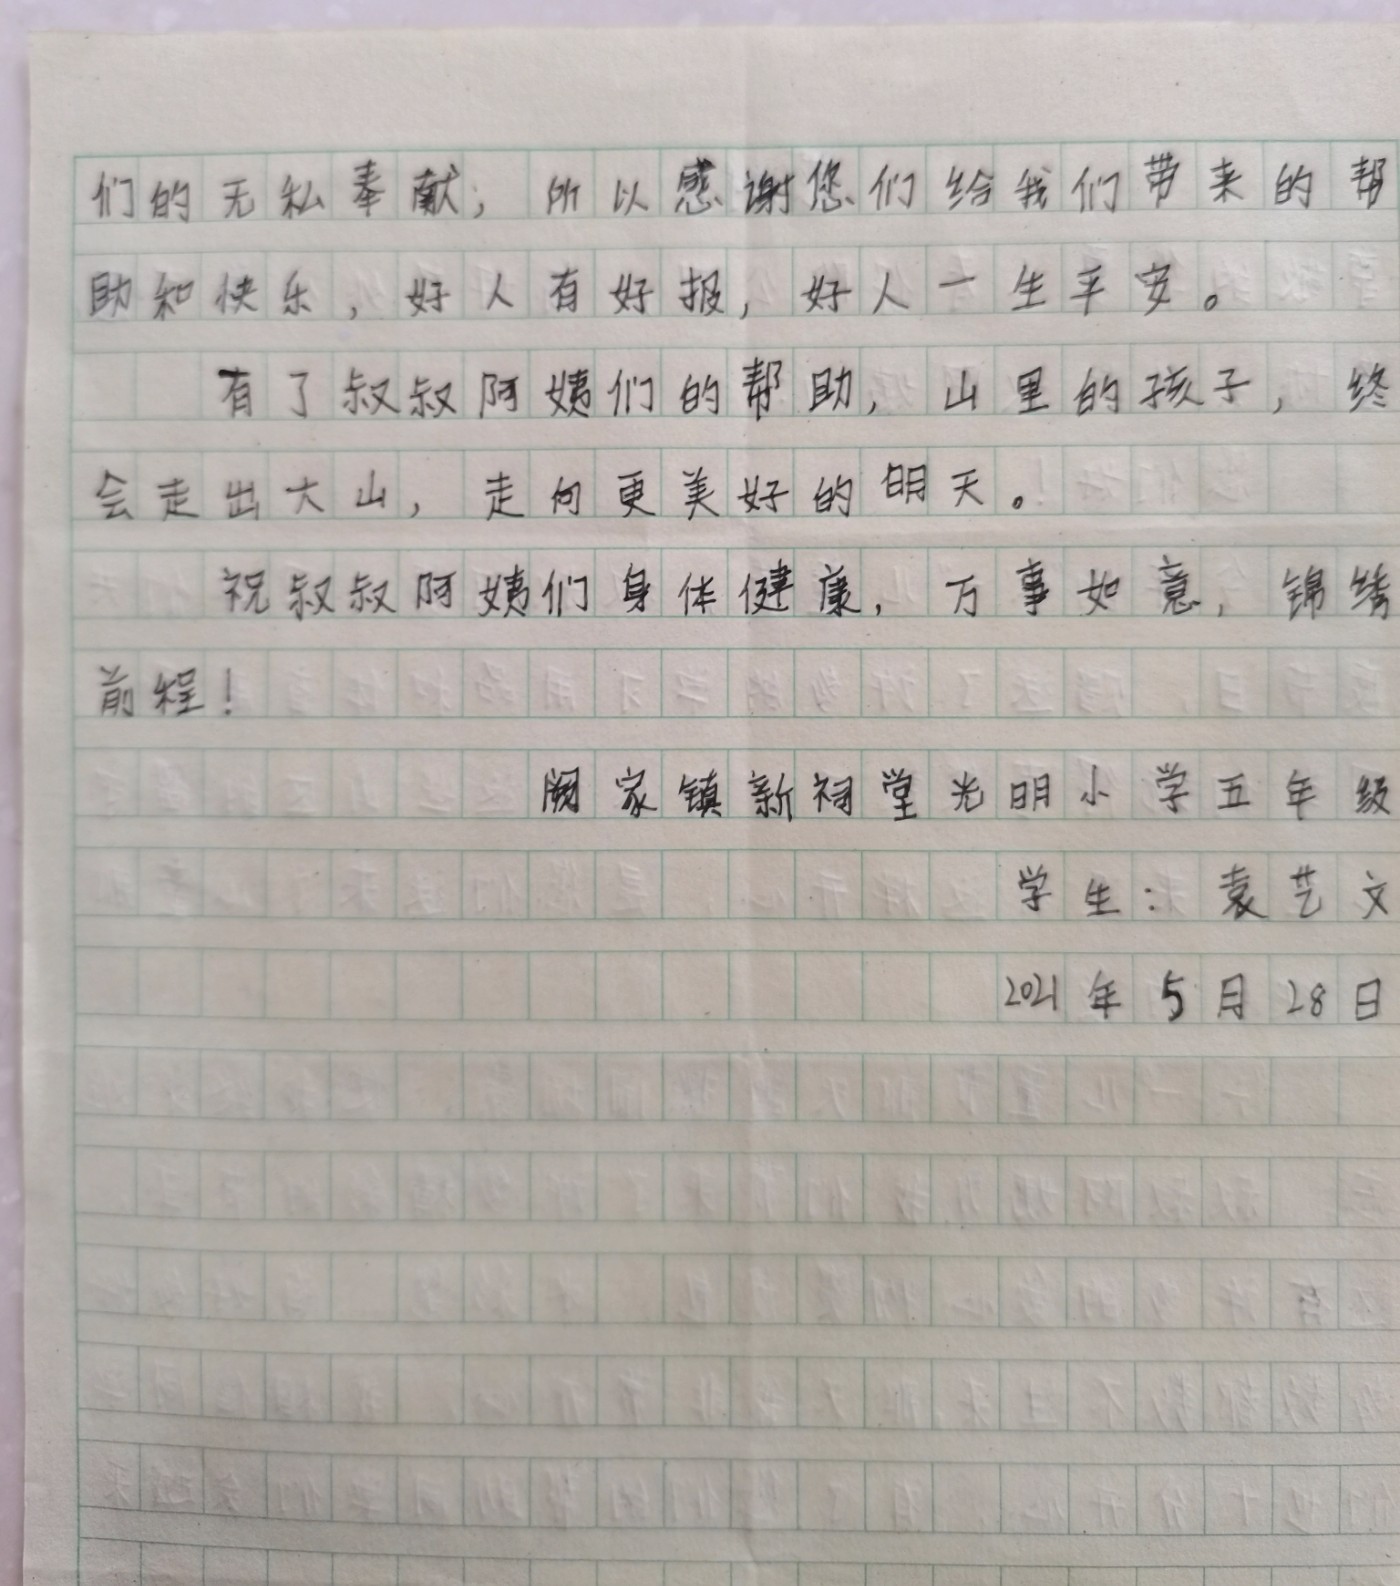 们的无私奉献；所以感谢您们给我们带来的帮
助和快乐，好人有好报，好人一生平安。
有了叔叔阿姨们的帮助，山里的孩子，终
会走出大山，走向更美好的明天。
祝叔叔阿姨们身体健康，万事如意，锦绣
前程！
阙家镇新祠堂光明小学五年级
学生：袁艺文
2021年5月28日